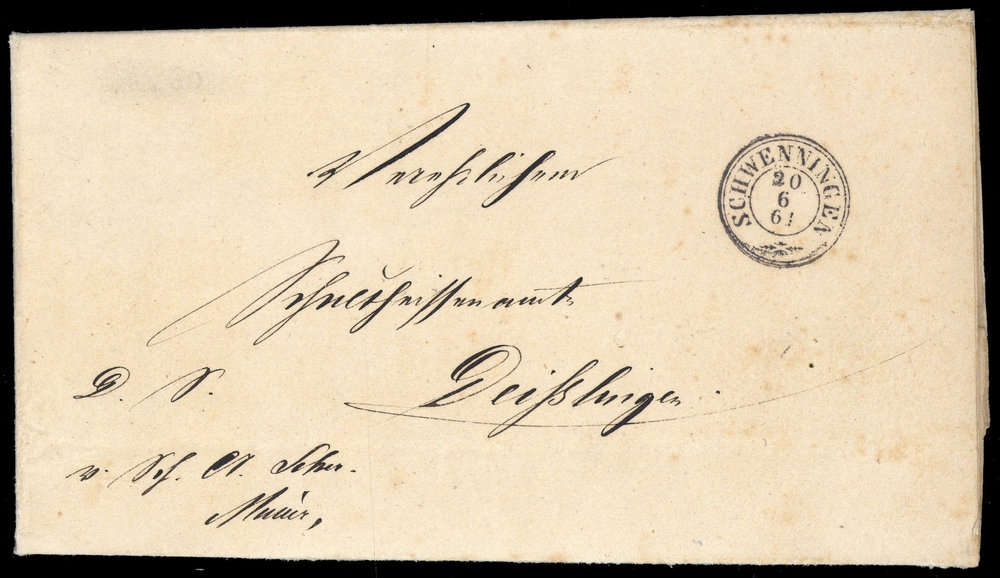 Verehrlichem
SCHWENNINGEN
20
6
61
Schultheissenamt
D. S.
Deißlingen
v. Sch. A. Schw.